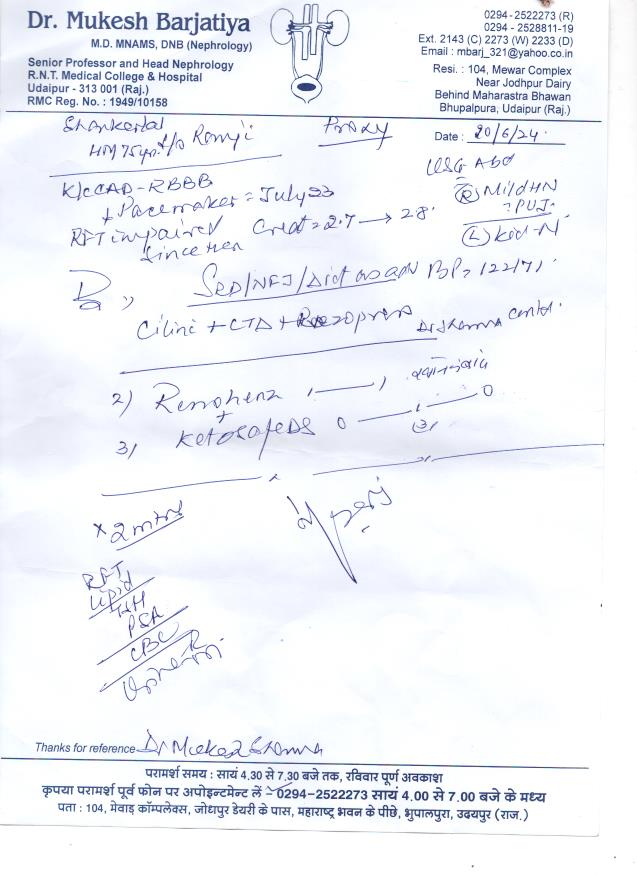 Dr. Mukesh Barjatiya
M.D. MNAMS, DNB (Nephrology)
Senior Professor and Head Nephrology
R.N.T. Medical College & Hospital
Udaipur - 313 001 (Raj.)
RMC Reg. No. : 1949/10158
0294 - 2522273 (R)
0294 - 2528811-19
Ext. 2143 (C) 2273 (W) 2233 (D)
Email : mbarj_321@yahoo.co.in
Resi. : 104, Mewar Complex
Near Jodhpur Dairy
Behind Maharastra Bhawan
Bhupalpura, Udaipur (Raj.)
Shankerlal
HM 75yr. s/o Ramji
Proxy
Date : 20/6/24
USG Abd
(R) Mild HN
? PUJ
(L) Kid-N
K/c CAD - RBBB
+ Pacemaker = July 23
RFT impaired Creat = 2.7 → 2.8
since then
BP = 122/71
Cilini + CTD +
Dr Sharma
2)
3) Ketosafe DS 0
(3)
x 2 mths
RFT
Lipid
PSA
CBC
Thanks for reference Dr Mukesh Sharma
परामर्श समय : सायं 4.30 से 7.30 बजे तक, रविवार पूर्ण अवकाश
कृपया परामर्श पूर्व फोन पर अपोइन्टमेन्ट लें :-0294-2522273 सायं 4.00 से 7.00 बजे के मध्य
पता : 104, मेवाड़ कॉम्पलेक्स, जोधपुर डेयरी के पास, महाराष्ट्र भवन के पीछे, भुपालपुरा, उदयपुर (राज.)